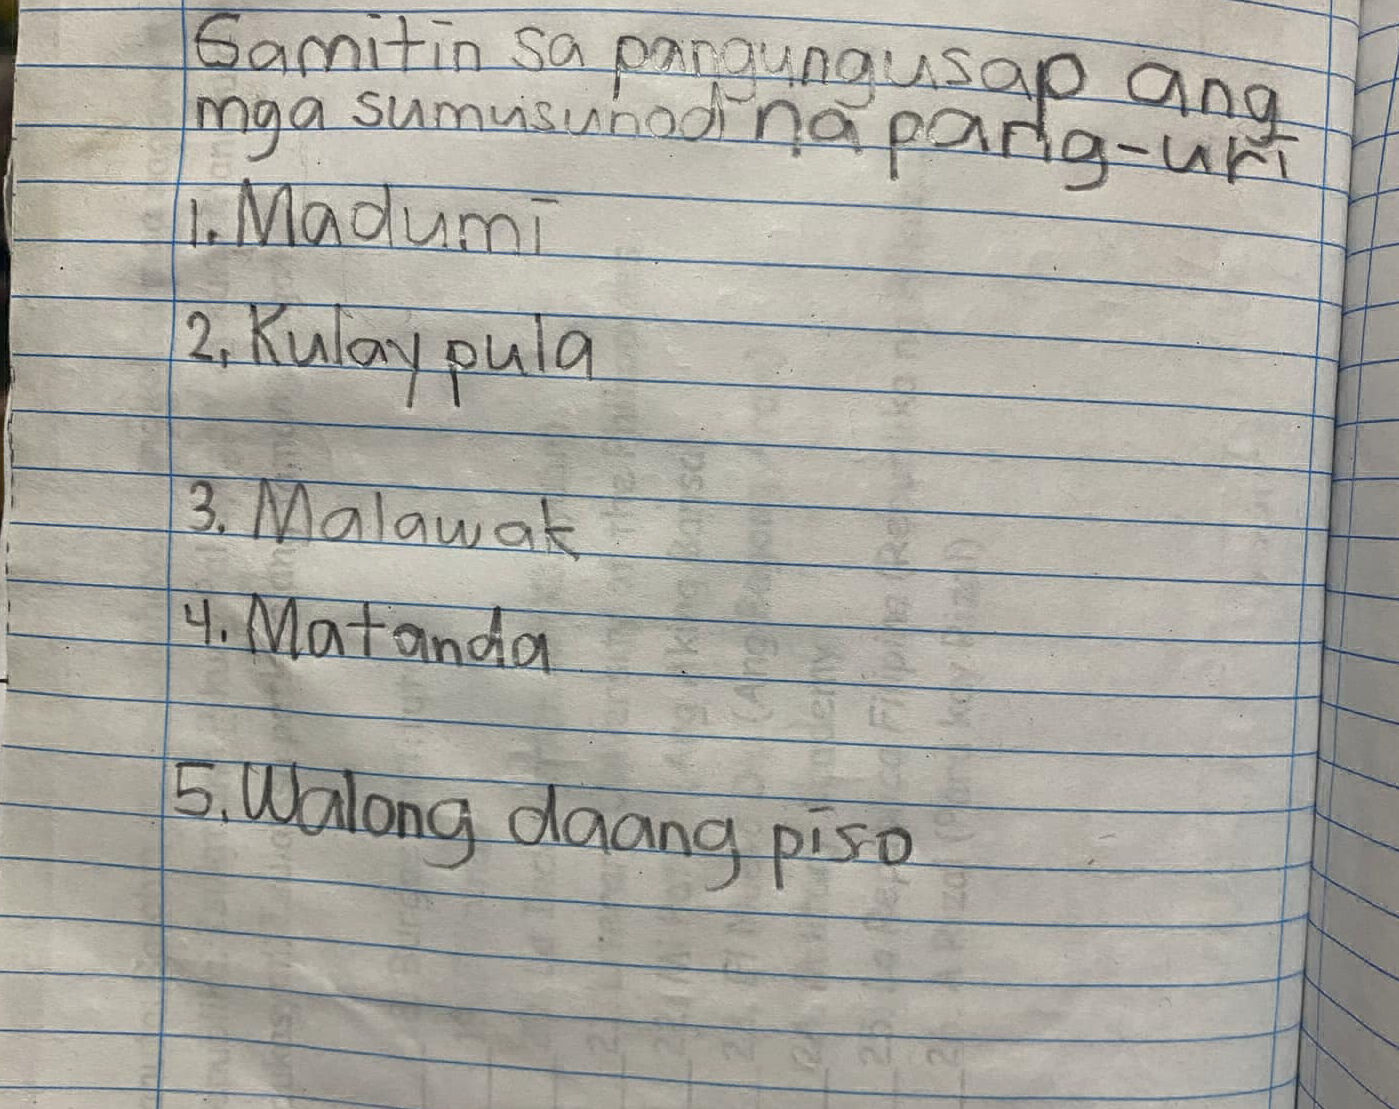 Samitin sa pangungusap ang
mga sumusunod na pang-uri
1. Madumi
2. Kulay pula
3. Malawak
4. Matanda
5. Walong daang piso